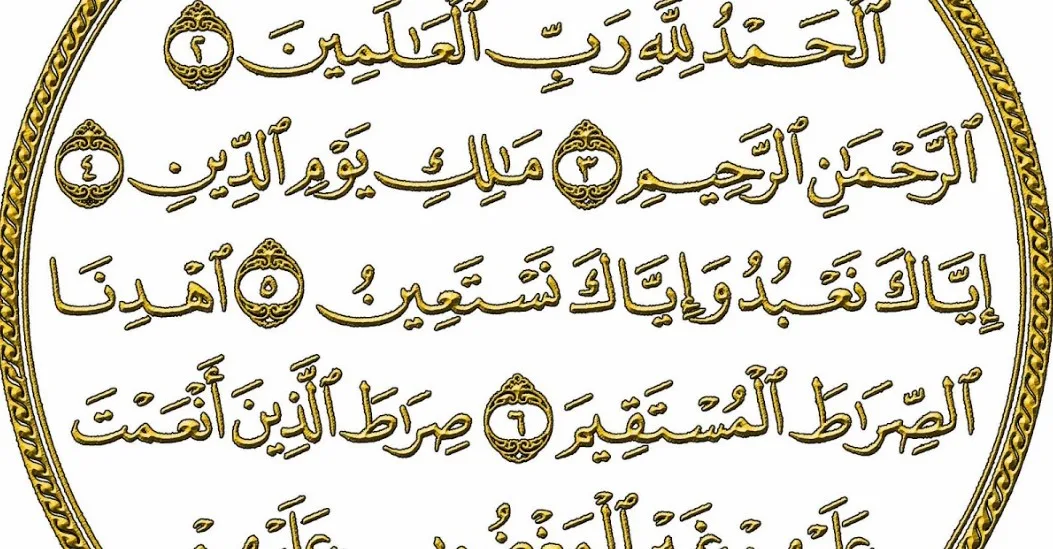 ٱلْحَمْدُ لِلَّهِ رَبِّ ٱلْعَـٰلَمِينَ ٢
ٱلرَّحْمَـٰنِ ٱلرَّحِيمِ ٣ مَـٰلِكِ يَوْمِ ٱلدِّينِ ٤
إِيَّاكَ نَعْبُدُ وَإِيَّاكَ نَسْتَعِينُ ٥ ٱهْدِنَا
ٱلصِّرَاطَ ٱلْمُسْتَقِيمَ ٦ صِرَاطَ ٱلَّذِينَ أَنْعَمْتَ